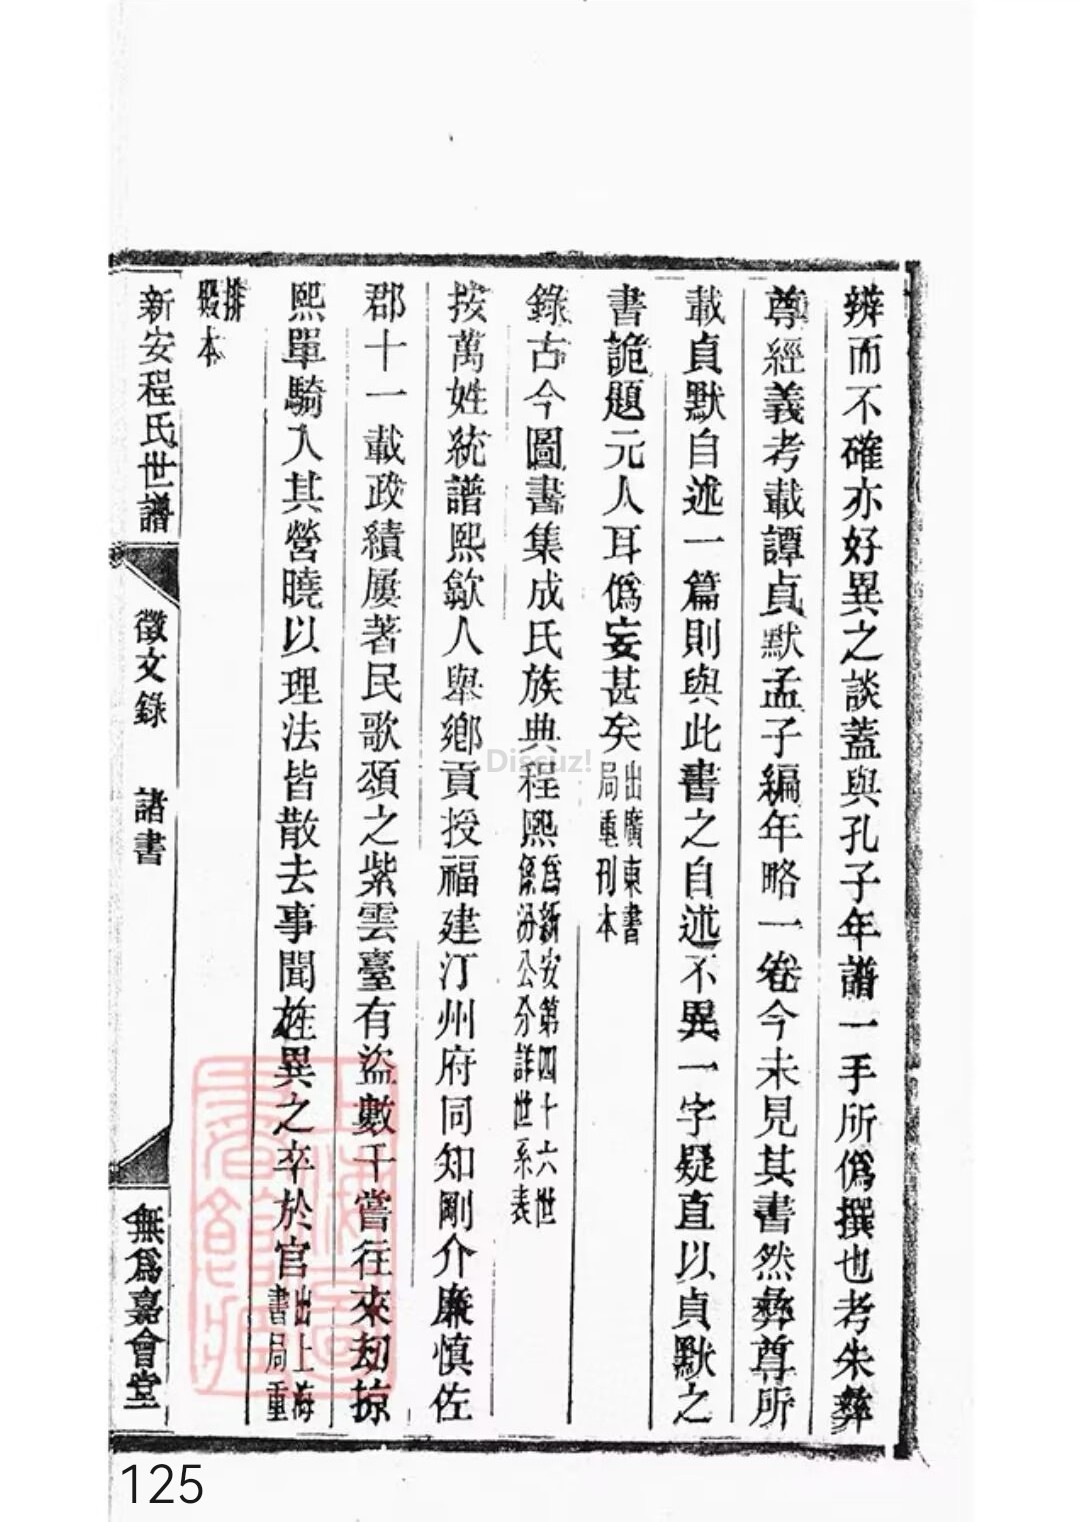 辨而不確亦好異之談蓋與孔子年譜一手所僞撰也考朱彝
尊經義考載譚貞默孟子編年略一卷今未見其書然彝尊所
載貞默自述一篇則與此書之自述不異一字疑直以貞默之
書詭題元人耳僞妄甚矣出廣東書
局重刊本
錄古今圖書集成氏族典程熙爲新安第四十六世
係汾公分詳世系表
按萬姓統譜熙歙人舉鄉貢授福建汀州府同知剛介廉慎佐
郡十一載政績屢著民歌頌之紫雲臺有盜數千嘗往來劫掠
熙單騎入其營曉以理法皆散去事聞旌異之卒於官出上海
書局重
排
影本
新安程氏世譜
徵文錄
諸書
無爲嘉會堂
Discuz!
125